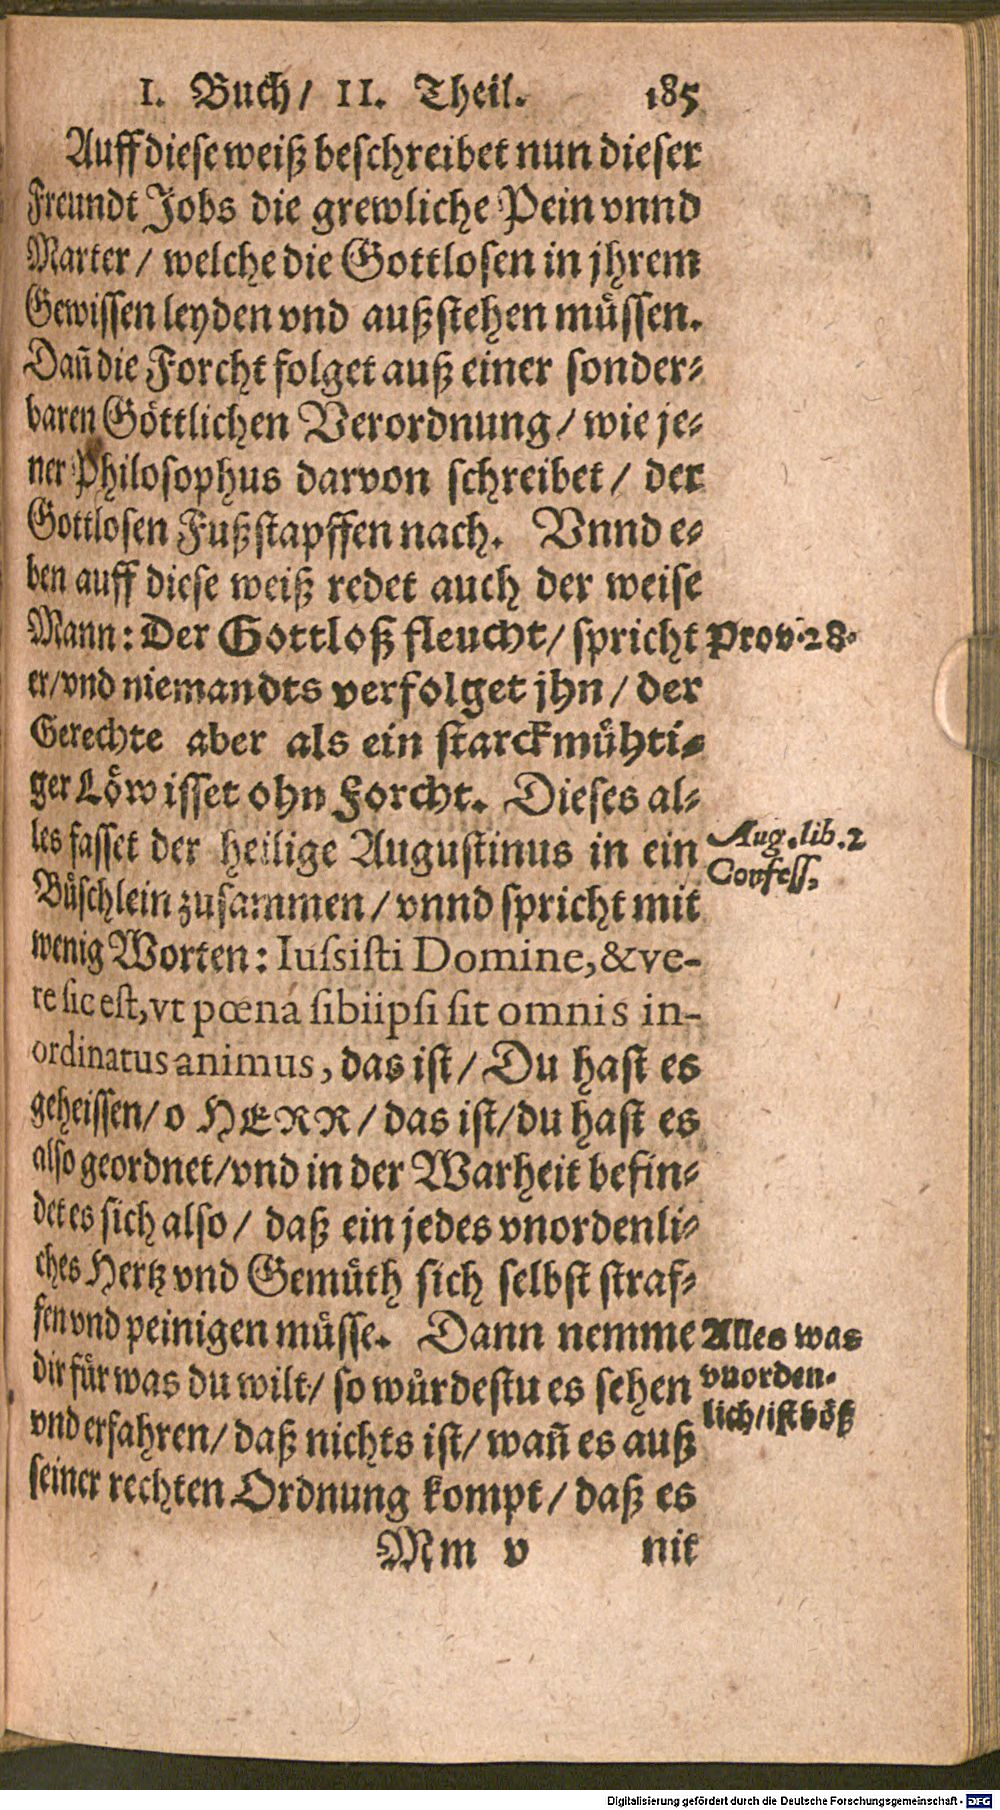 I. Buch/ II. Theil. 185
Auff diese weiß beschreibet nun dieser
Freundt Jobs die grewliche Pein vnnd
Marter/ welche die Gottlosen in jhrem
Gewissen leyden vnd außstehen müssen.
Dañ die Forcht folget auß einer sonder-
baren Göttlichen Verordnung/ wie je-
ner Philosophus darvon schreibet/ der
Gottlosen Fußstapffen nach. Vnnd e-
ben auff diese weiß redet auch der weise
Mann: Der Gottloß fleucht/ spricht
Prov. 28.
er/vnd niemandts verfolget jhn/ der
Gerechte aber als ein starckmühti-
ger Löw isset ohn Forcht. Dieses al-
les fasset der heilige Augustinus in ein
Aug. lib. 2
Confess.
Büschlein zusammen/ vnnd spricht mit
wenig Worten: Iussisti Domine, & ve-
re sic est, vt pœna sibiipsi sit omnis in-
ordinatus animus, das ist/ Du hast es
geheissen/ o HERR/ das ist/ du hast es
also geordnet/vnd in der Warheit befin-
det es sich also/ daß ein jedes vnordenli-
ches Hertz vnd Gemüth sich selbst straf-
fen vnd peinigen müsse. Dann nemme
Alles was
vnorden-
lich/ist böß
dir für was du wilt/ so würdestu es sehen
vnd erfahren/ daß nichts ist/ wañ es auß
seiner rechten Ordnung kompt/ daß es
Mm v nit
Digitalisierung gefördert durch die Deutsche Forschungsgemeinschaft - DFG